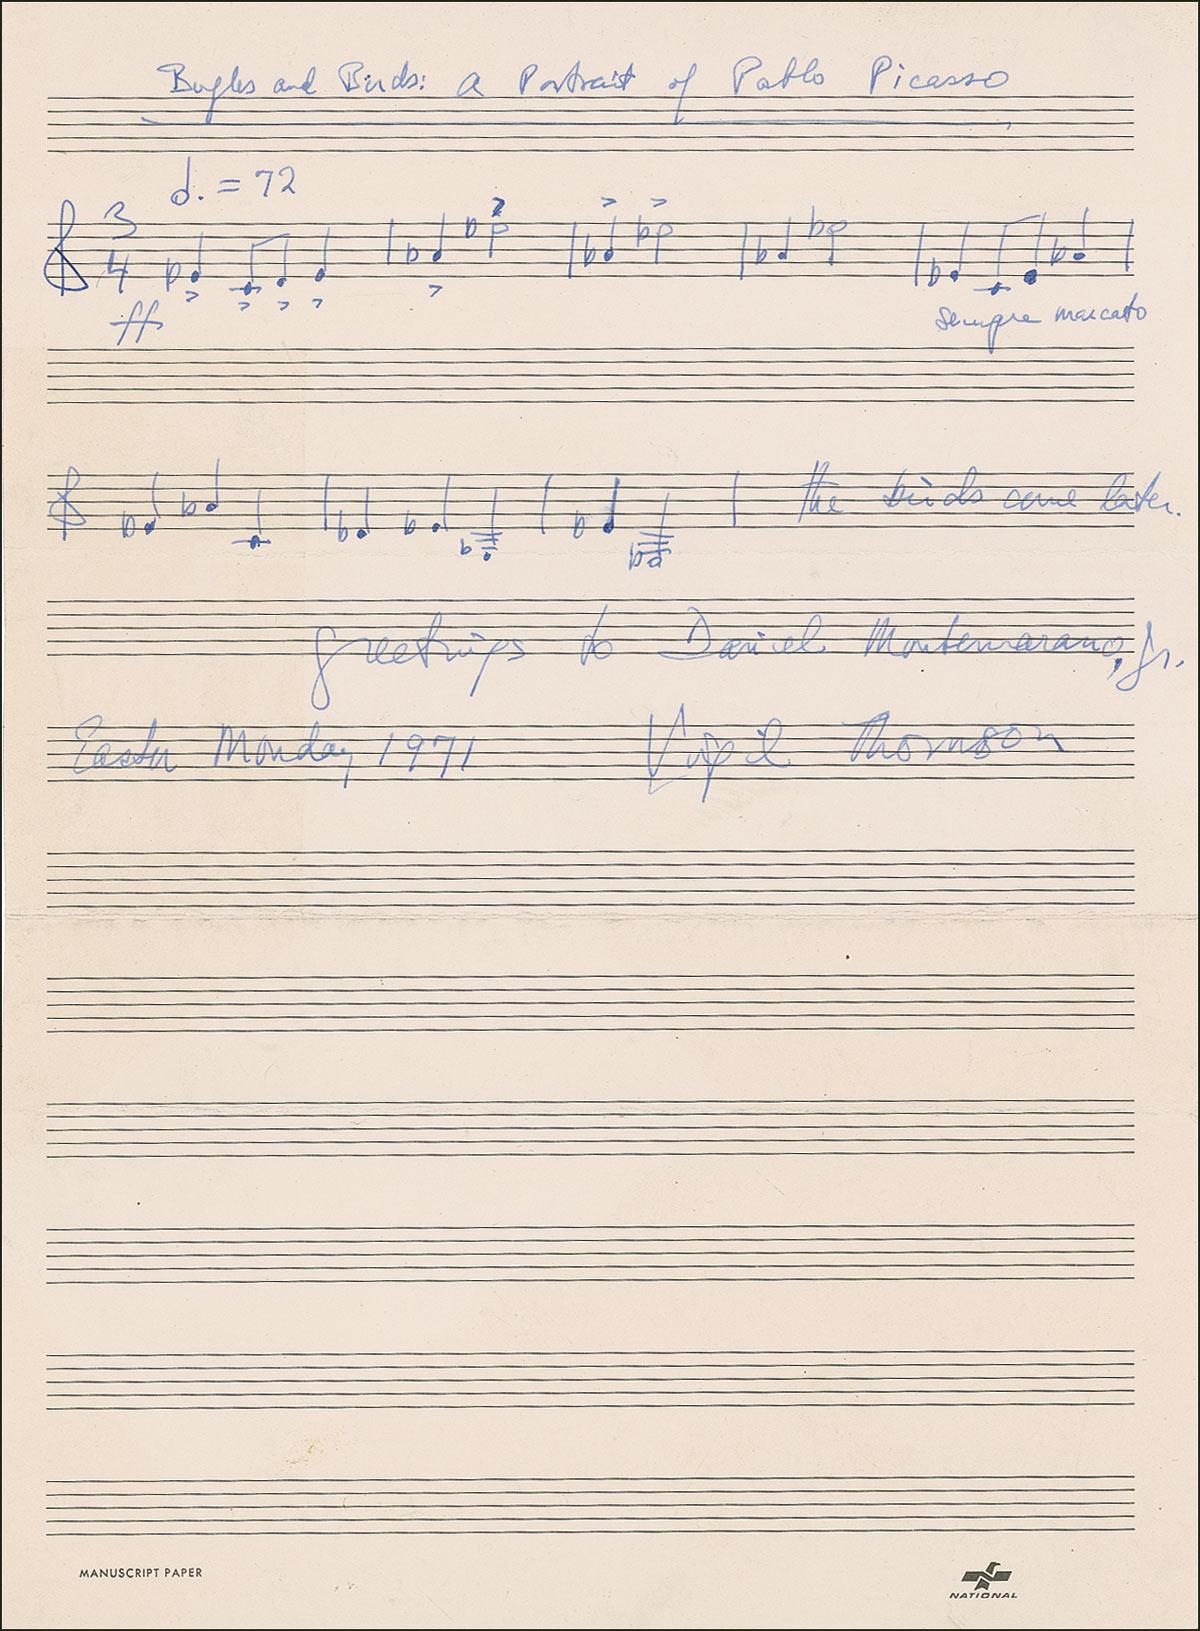 Bugles and Birds: a Portrait of Pablo Picasso
𝅗𝅥. = 72
3
4
ff
sempre marcato
the birds come later.
Greetings to Daniel Montemarano, Jr.
Easter Monday 1971 Virgil Thomson
MANUSCRIPT PAPER
NATIONAL